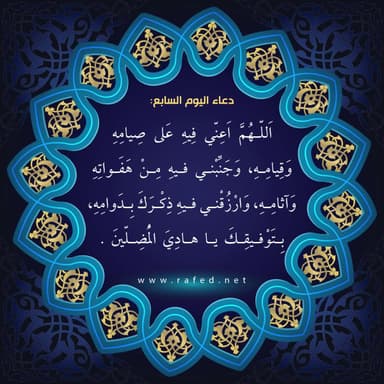 دعاء اليوم السابع:
اَللّـهُمَّ اَعنّي فِيهِ عَلى صِيامِهِ
وَقِيامِـهِ، وَجَنِّبْني فـيهِ مِنْ هَفَـواتِهِ
وَآثامِـهِ، وَارْزُقْنـي فيهِ ذِكْـرَكَ بِـدَوامِهِ،
بِـتَوْفـيقِـكَ يـا هـادِيَ الْمُضـلّينَ .
www.rafed.net